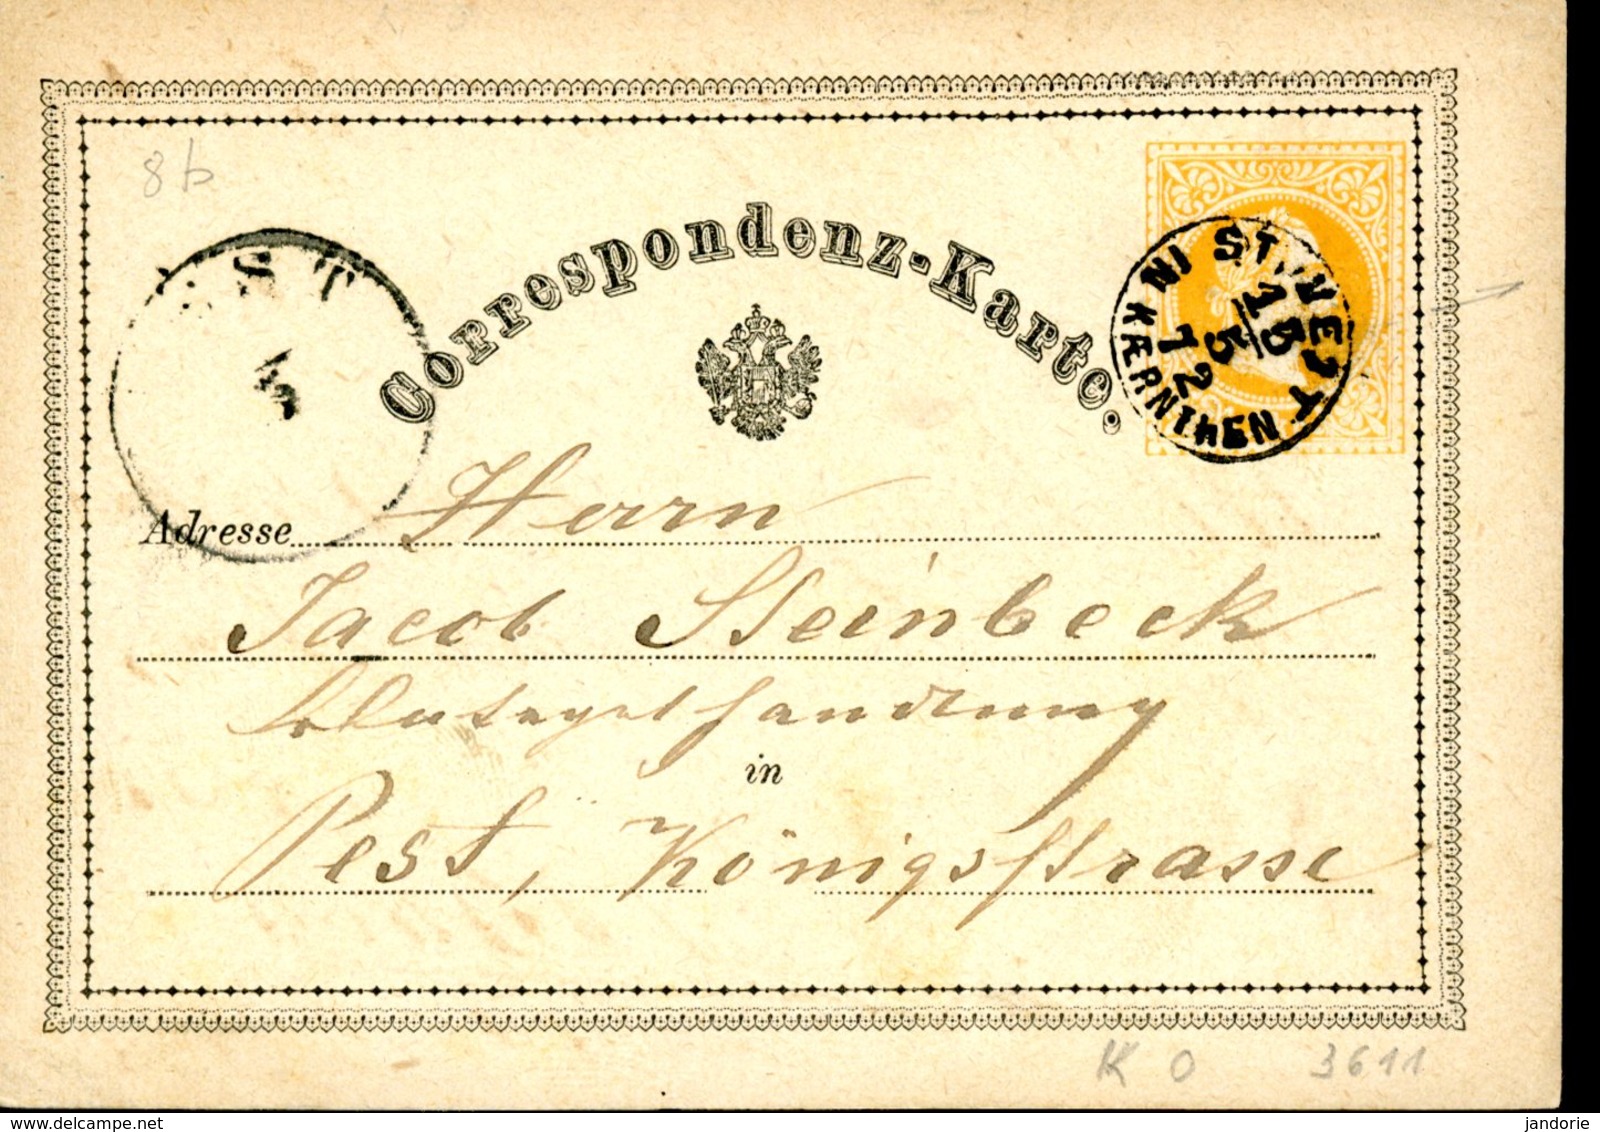 8b
Correspondenz-Karte.
ST. VEIT
IN KÆRNTHEN
15
5
72
ST
Adresse Herrn
Jacob Steinbeck
Blutegelhandlung
in
Pest, Königsstrasse
K O 3611
delcampe.net
jandorie